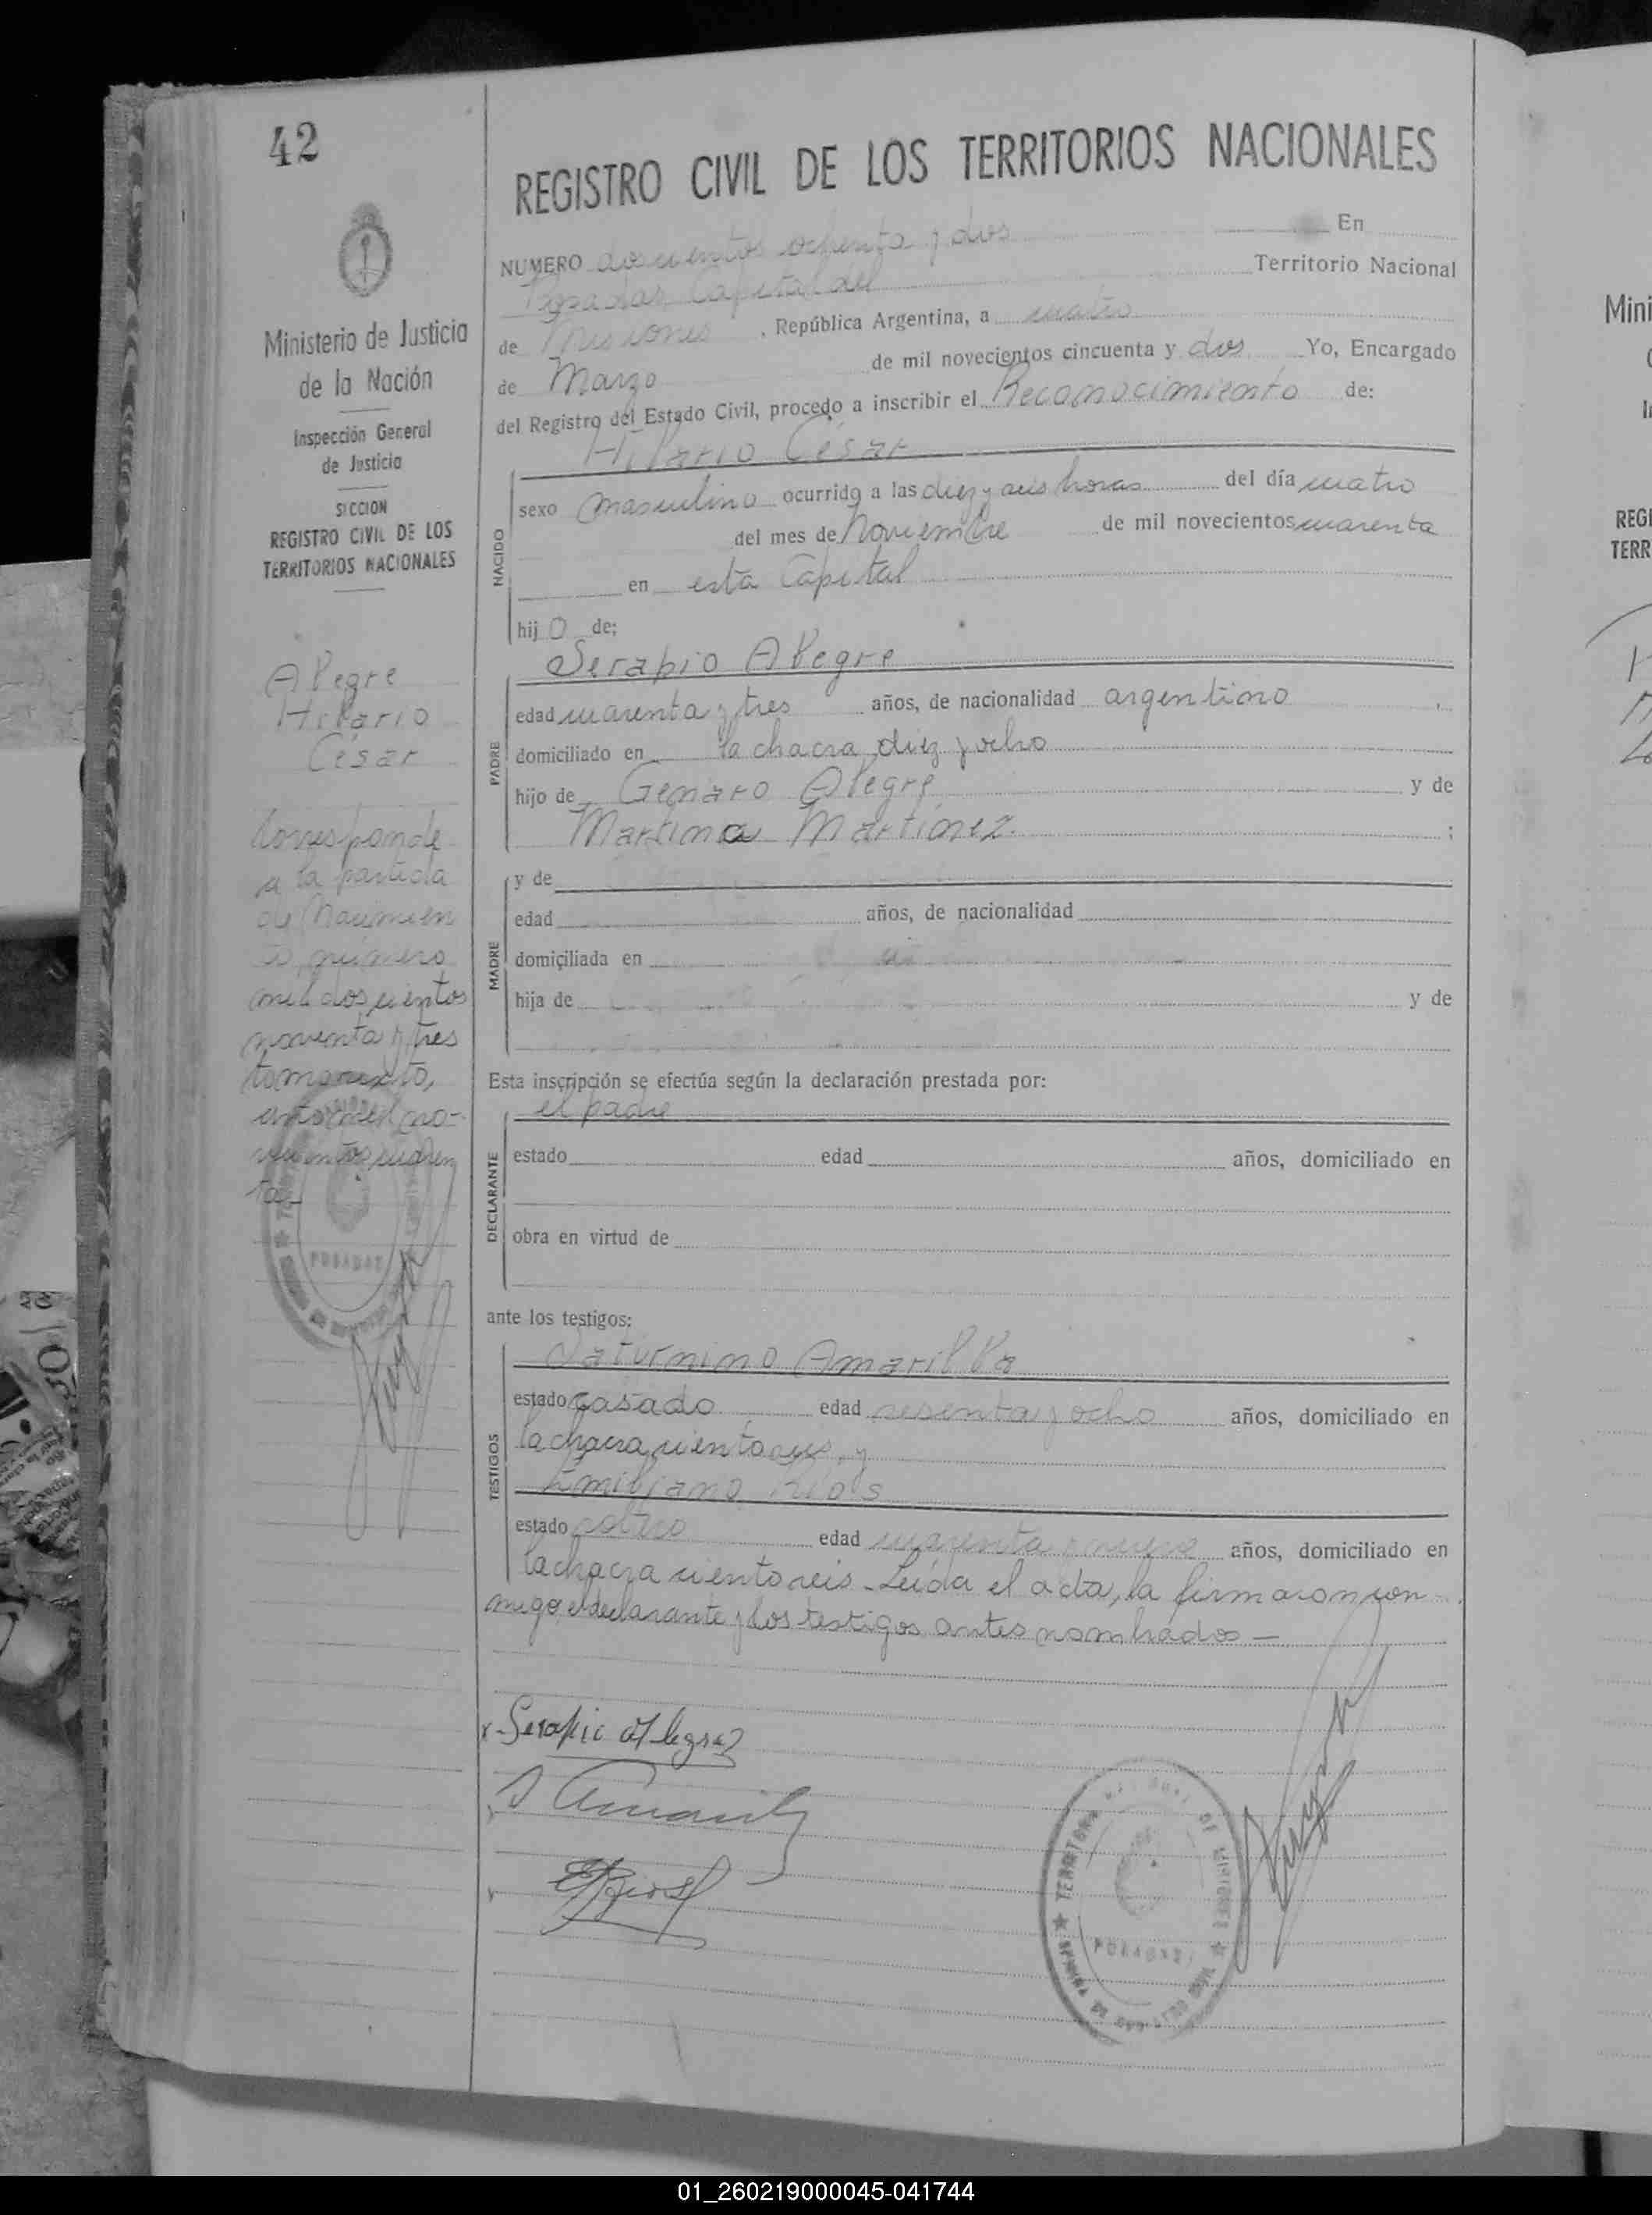 42
REGISTRO CIVIL DE LOS TERRITORIOS NACIONALES
NUMERO doscientos ochenta y dos En
Posadas Capital del Territorio Nacional
de Misiones, República Argentina, a cuatro
de Marzo de mil novecientos cincuenta y dos Yo, Encargado
del Registro del Estado Civil, procedo a inscribir el Reconocimiento de:
Hilario César
NACIDO
sexo masculino ocurrido a las diez y seis horas del día cuatro
del mes de Noviembre de mil novecientos cuarenta
en esta Capital
hijo de:
Serapio Alegre
PADRE
edad cuarenta y tres años, de nacionalidad argentino
domiciliado en la chacra diez y ocho
hijo de Genaro Alegre y de
Martina Martinez.;
MADRE
y de
edad años, de nacionalidad
domiciliada en
hija de y de
Esta inscripción se efectúa según la declaración prestada por:
el padre
DECLARANTE
estado edad años, domiciliado en
obra en virtud de
ante los testigos:
Saturnino Amarilla
TESTIGOS
estado casado, edad sesenta y ocho años, domiciliado en
la chacra ciento seis, y
Emiliano Rios
estado soltero edad cuarenta y nueve años, domiciliado en
la chacra ciento seis. Leída el acta, la firmaron con-
migo, el declarante y los testigos antes nombrados —
x Serapio Alegre
S Amarilla
E Rios
POSADAS
Ministerio de Justicia
de la Nación
Inspección General
de Justicia
SECCION
REGISTRO CIVIL DE LOS
TERRITORIOS NACIONALES
Alegre
Hilario
César
Corresponde
a la partida
de Nacimien
to, número
mil doscientos
noventa y tres
tomo sexto,
año mil no-
vecientos cuaren
ta_
POSADAS
Mini
REGI
TERR
01_260219000045-041744